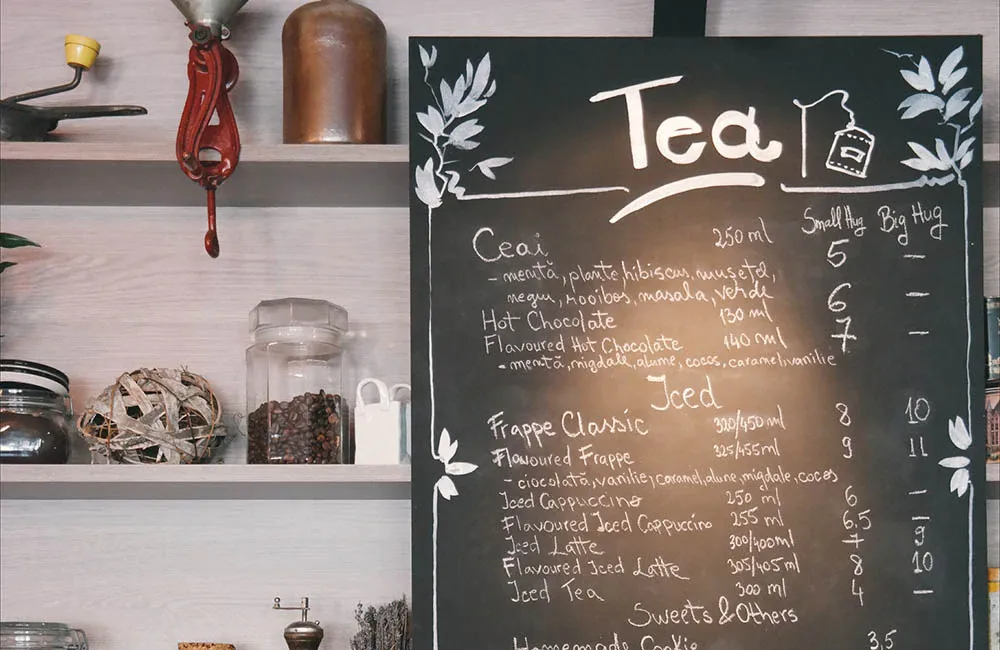 Tea
Small Hug Big Hug
Ceai 250 ml 5 -
- mentă, plante, hibiscus, mușețel,
negru, rooibos, masala, verde
Hot Chocolate 130 ml 6 -
Flavoured Hot Chocolate 140 ml 7 -
- mentă, migdale, alune, cocos, caramel, vanilie
Iced
Frappe Classic 320/450 ml 8 10
Flavoured Frappe 325/455 ml 9 11
- ciocolată, vanilie, caramel, alune, migdale, cocos
Iced Cappuccino 250 ml 6 -
Flavoured Iced Cappuccino 255 ml 6,5 -
Iced Latte 300/400 ml 7 9
Flavoured Iced Latte 305/405 ml 8 10
Iced Tea 300 ml 4 -
Sweets & Others
Homemade Cookie 3,5